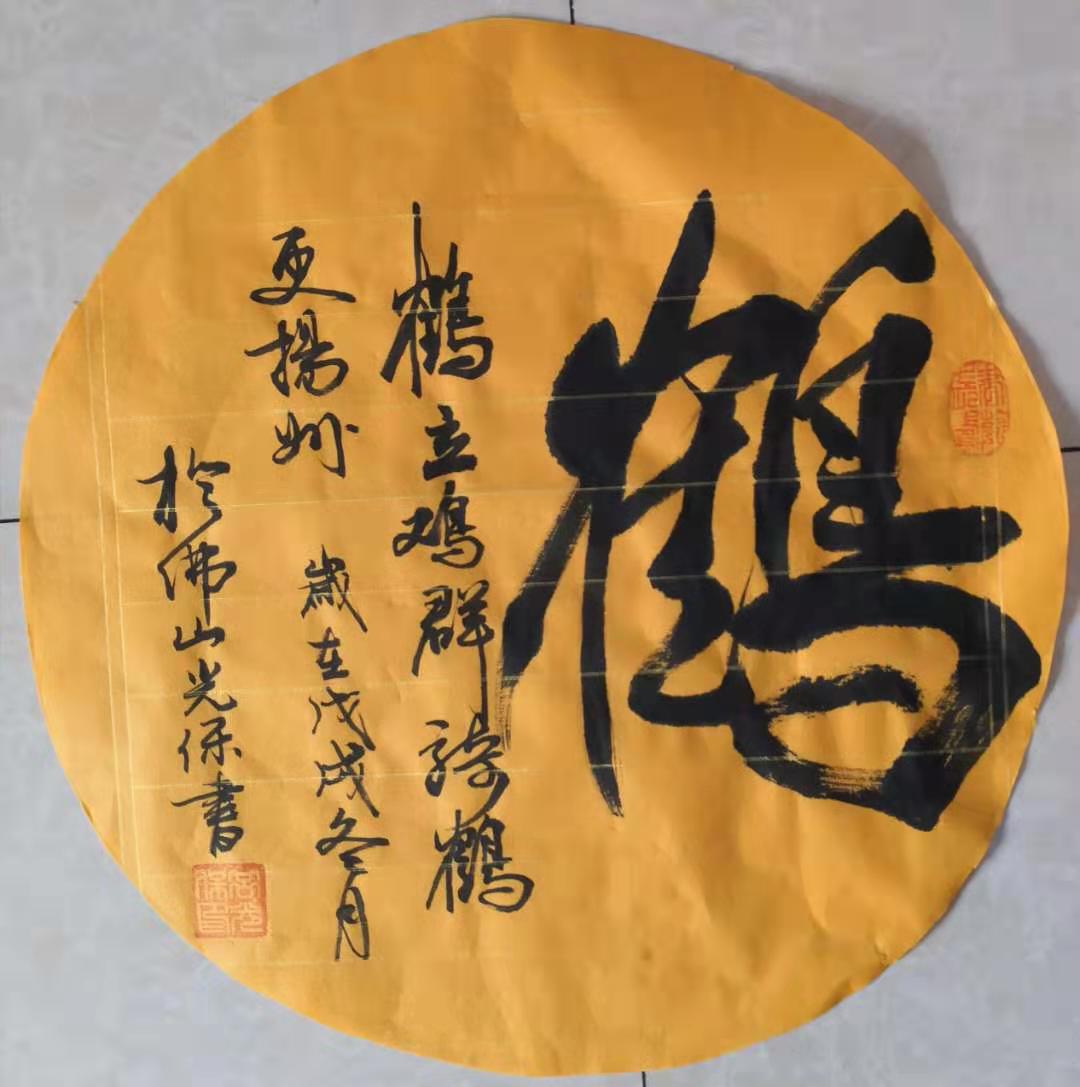 鶴
鶴立鸡群騎鶴
更揚州 歲在戊戌冬月
於佛山光保書